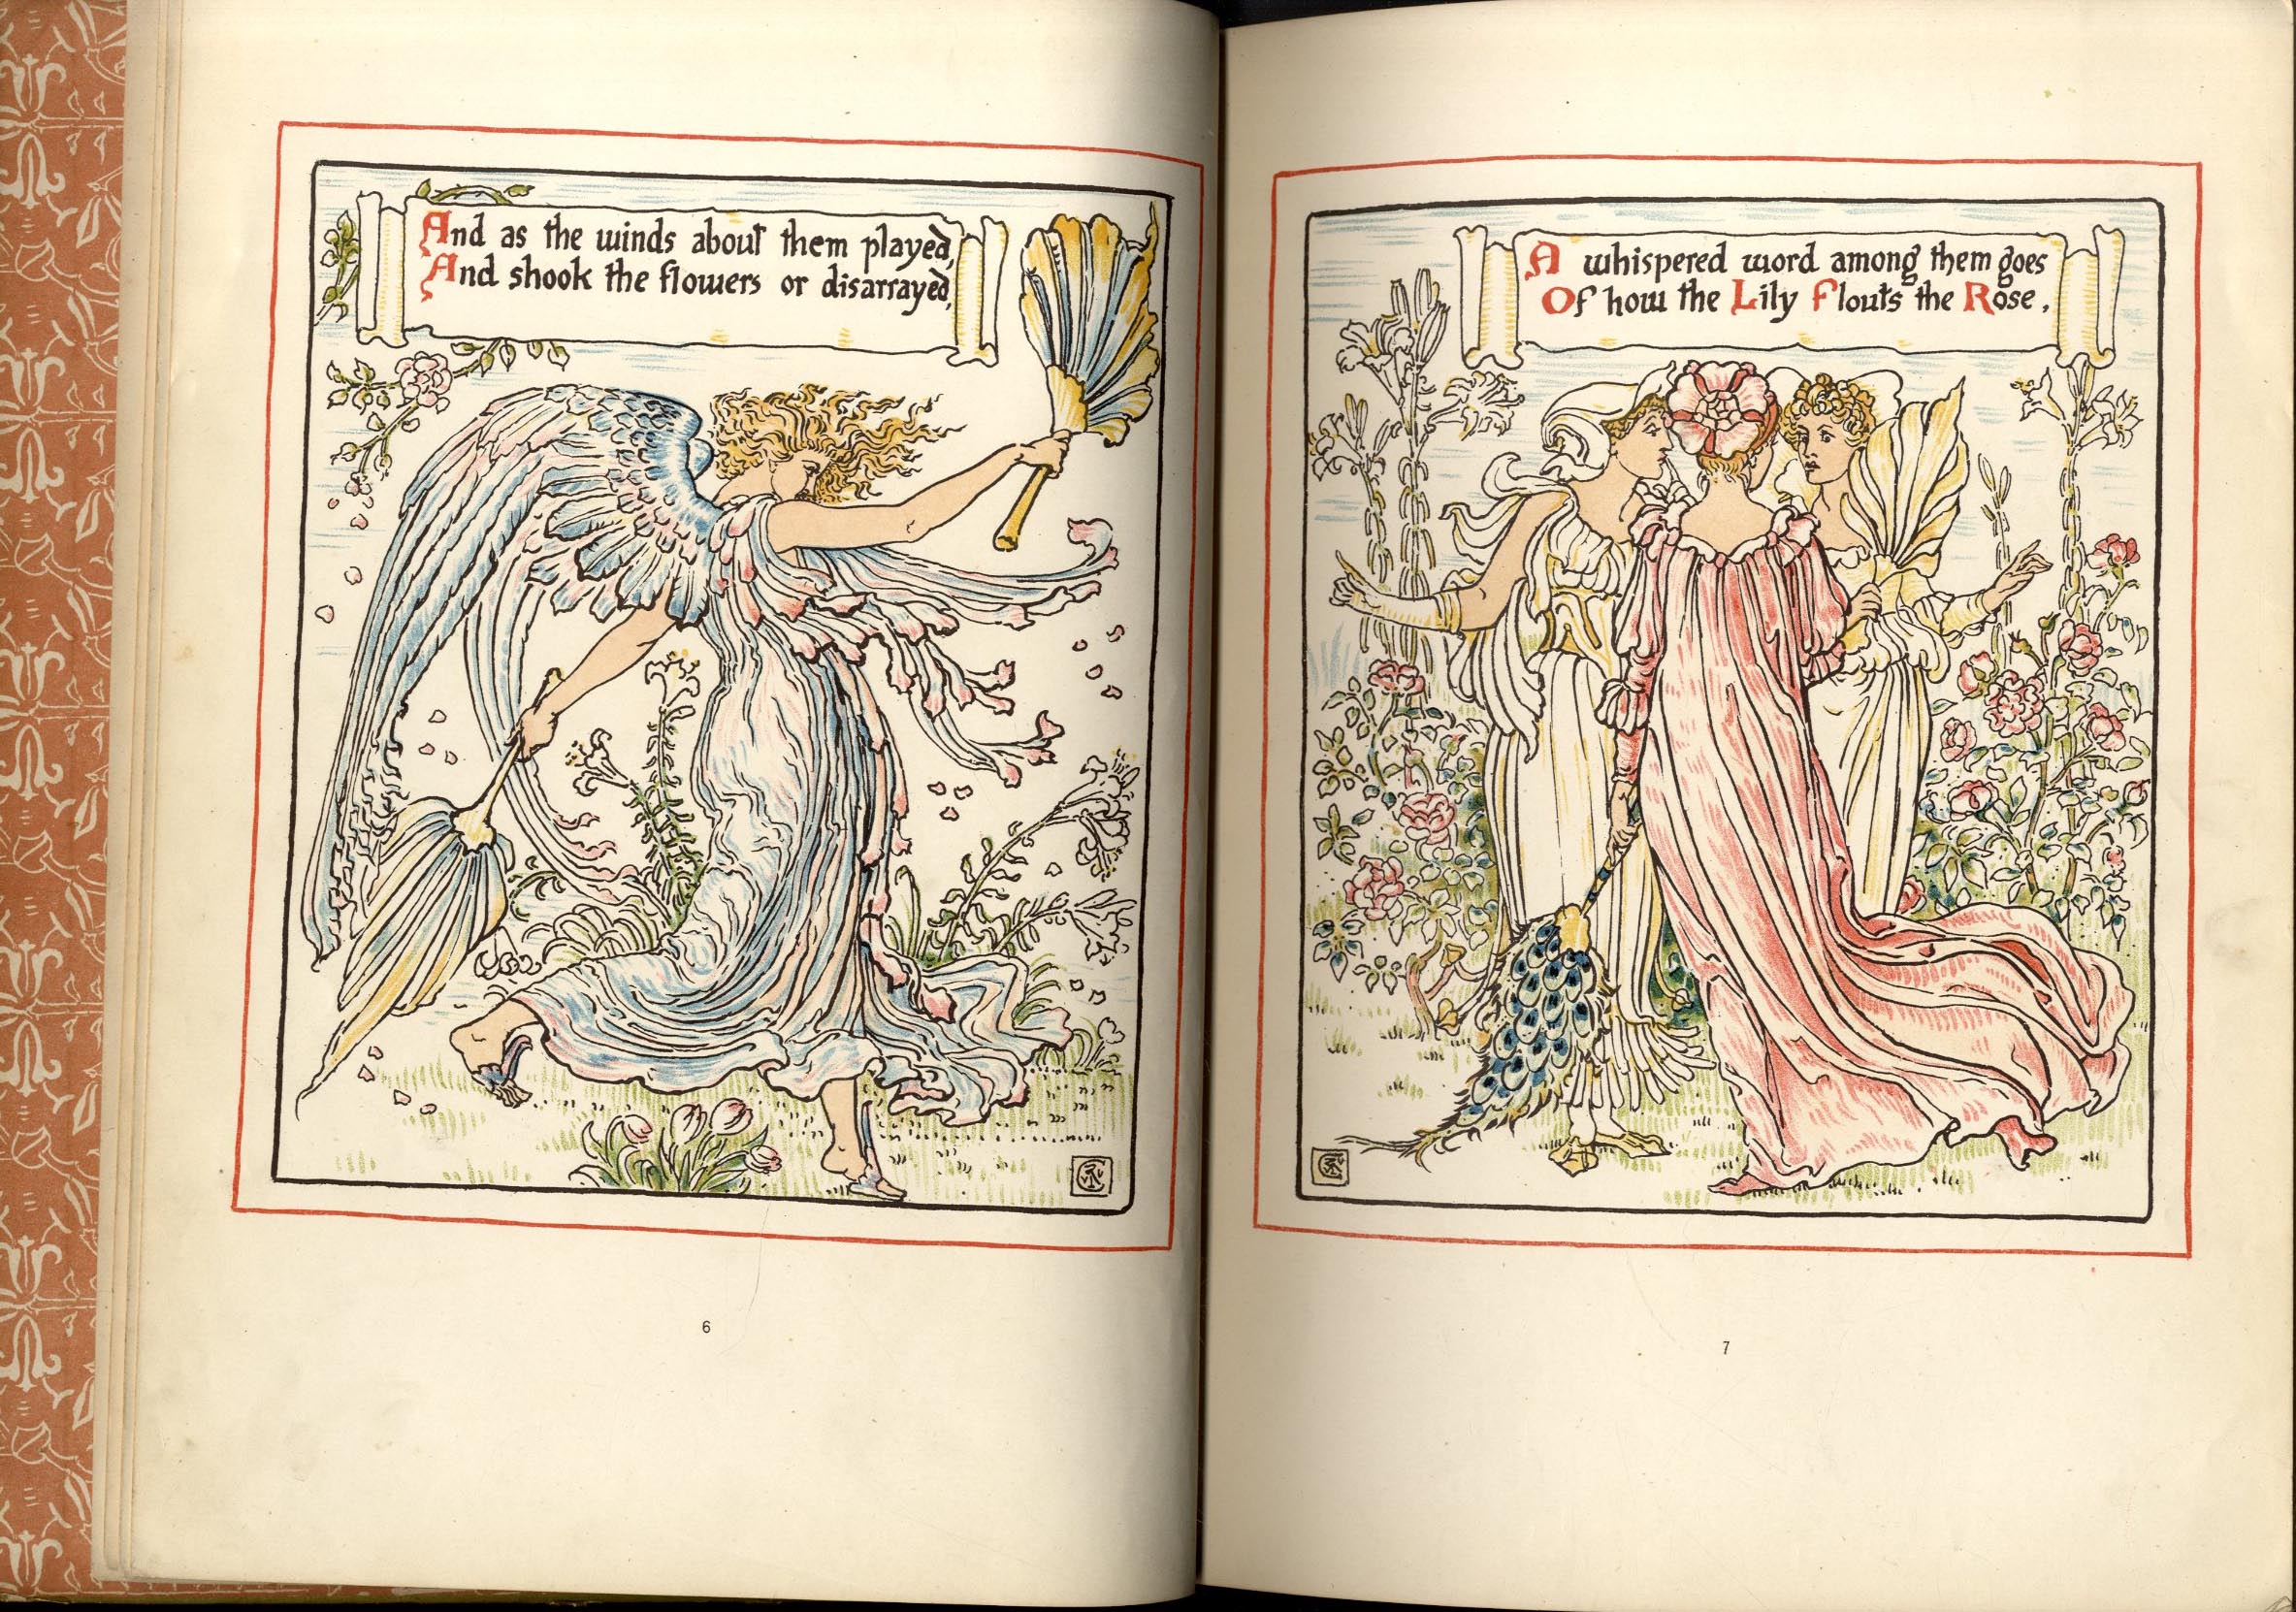 And as the winds about them played,
And shook the flowers or disarrayed,
6
A whispered word among them goes
Of how the Lily Flouts the Rose.
7